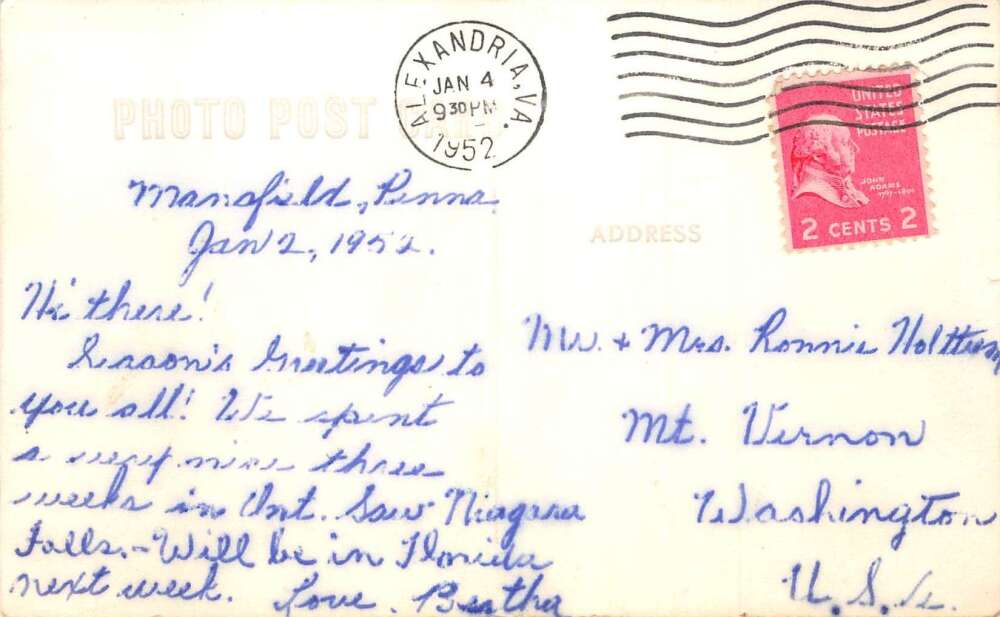 PHOTO POST CARD
ALEXANDRIA, VA.
JAN 4
9 30 PM
1952
UNITED
STATES
POSTAGE
JOHN
ADAMS
1797-1801
2 CENTS 2
ADDRESS
Mansfield, Penna.
Jan 2, 1952.
Hi there!
Season's Greetings to
you all! We spent
a very nice three
weeks in Ont. Saw Niagara
Falls. - Will be in Florida
next week. Love, Bertha
Mr. + Mrs. Ronnie
Mt. Vernon
Washington
U.S.A.